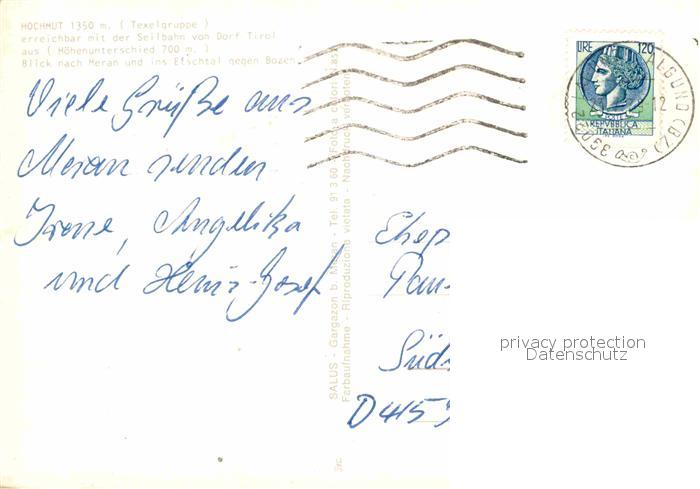 HOCHMUT 1350 m. ( Texelgruppe )
erreichbar mit der Seilbahn von Dorf Tirol
aus ( Höhenunterschied 700 m. )
Blick nach Meran und ins Etschtal gegen Bozen
Viele Grüße aus
Meran senden
Irene, Angelika
und Heinz-Josef
SALUS - Gargazon b. Meran - Tel. 91 3 60
Farbaufnahme - Riproduzione vietata - Nachdruck verboten
LIRE 120
REPVBBLICA
ITALIANA
ALGUND (BZ)
12
Ehep
Süd
D 415
privacy protection
Datenschutz